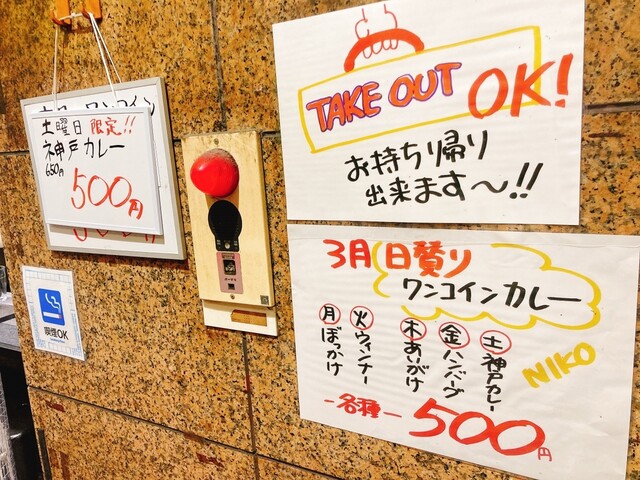 ワンコイン
土曜日 限定!!
神戸カレー
650円
500円
喫煙OK
TAKE OUT OK!
お持ち帰り
出来ます〜!!
3月 日賛り
ワンコインカレー
月 ぼっかけ
火 ウィンナー
木 あいがけ
金 ハンバーグ
土 神戸カレー
NIKO
-各種-
500円